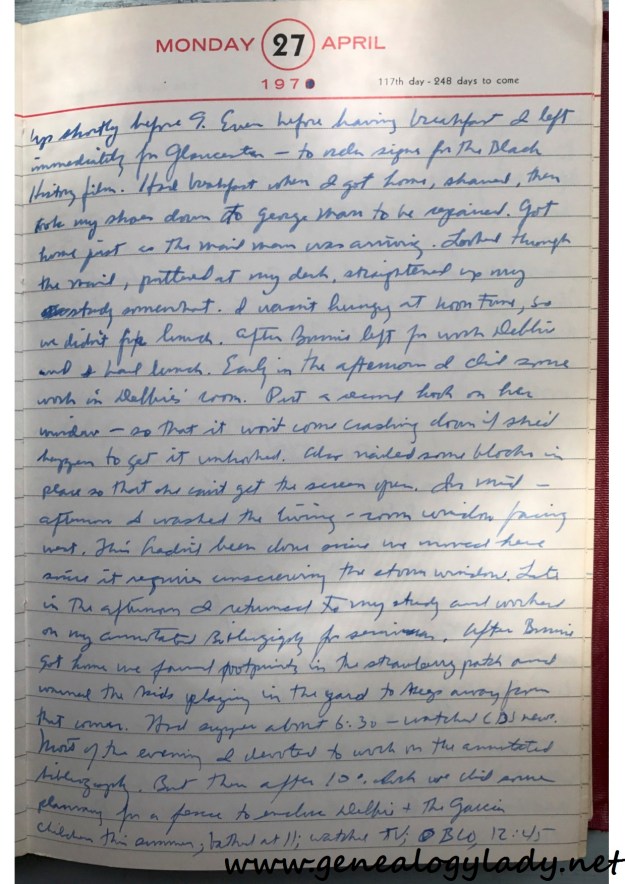 MONDAY 27 APRIL
197
117th day - 248 days to come
Up shortly before 9. Even before having breakfast I left
immediately for Gloucester – to order signs for The Black
History film. Had breakfast when I got home, shaved, then
took my shoes down to George Mann to be repaired. Got
home just as the mail man was arriving. Looked through
the mail, puttered at my desk, straightened up my
study somewhat. I wasn't hungry at noon time, so
we didn't fix lunch. After Bonnie left for work Debbie
and I had lunch. Early in the afternoon I did some
work in Debbie's room. Put a second hook on her
window – so that it won't come crashing down if she'd
happen to get it unhooked. Also nailed some blocks in
place so that she can't get the screen open. In mid-
afternoon I washed the living-room window facing
west. This hadn't been done since we moved here
since it requires unscrewing the storm window. Late
in the afternoon I returned to my study and worked
on my annotated bibliography for seminar. After Bonnie
got home we found footprints in the strawberry patch and
warned the kids playing in the yard to keep away from
that corner. Had supper about 6:30 – watched CBS news.
Most of the evening I devoted to work on the annotated
bibliography. But then after 10 o'clock we did some
planning for a fence to enclose Debbie + the Garcia
children this summer; bathed at 11; watched TV; BLO, 12:45
www.genealogylady.net